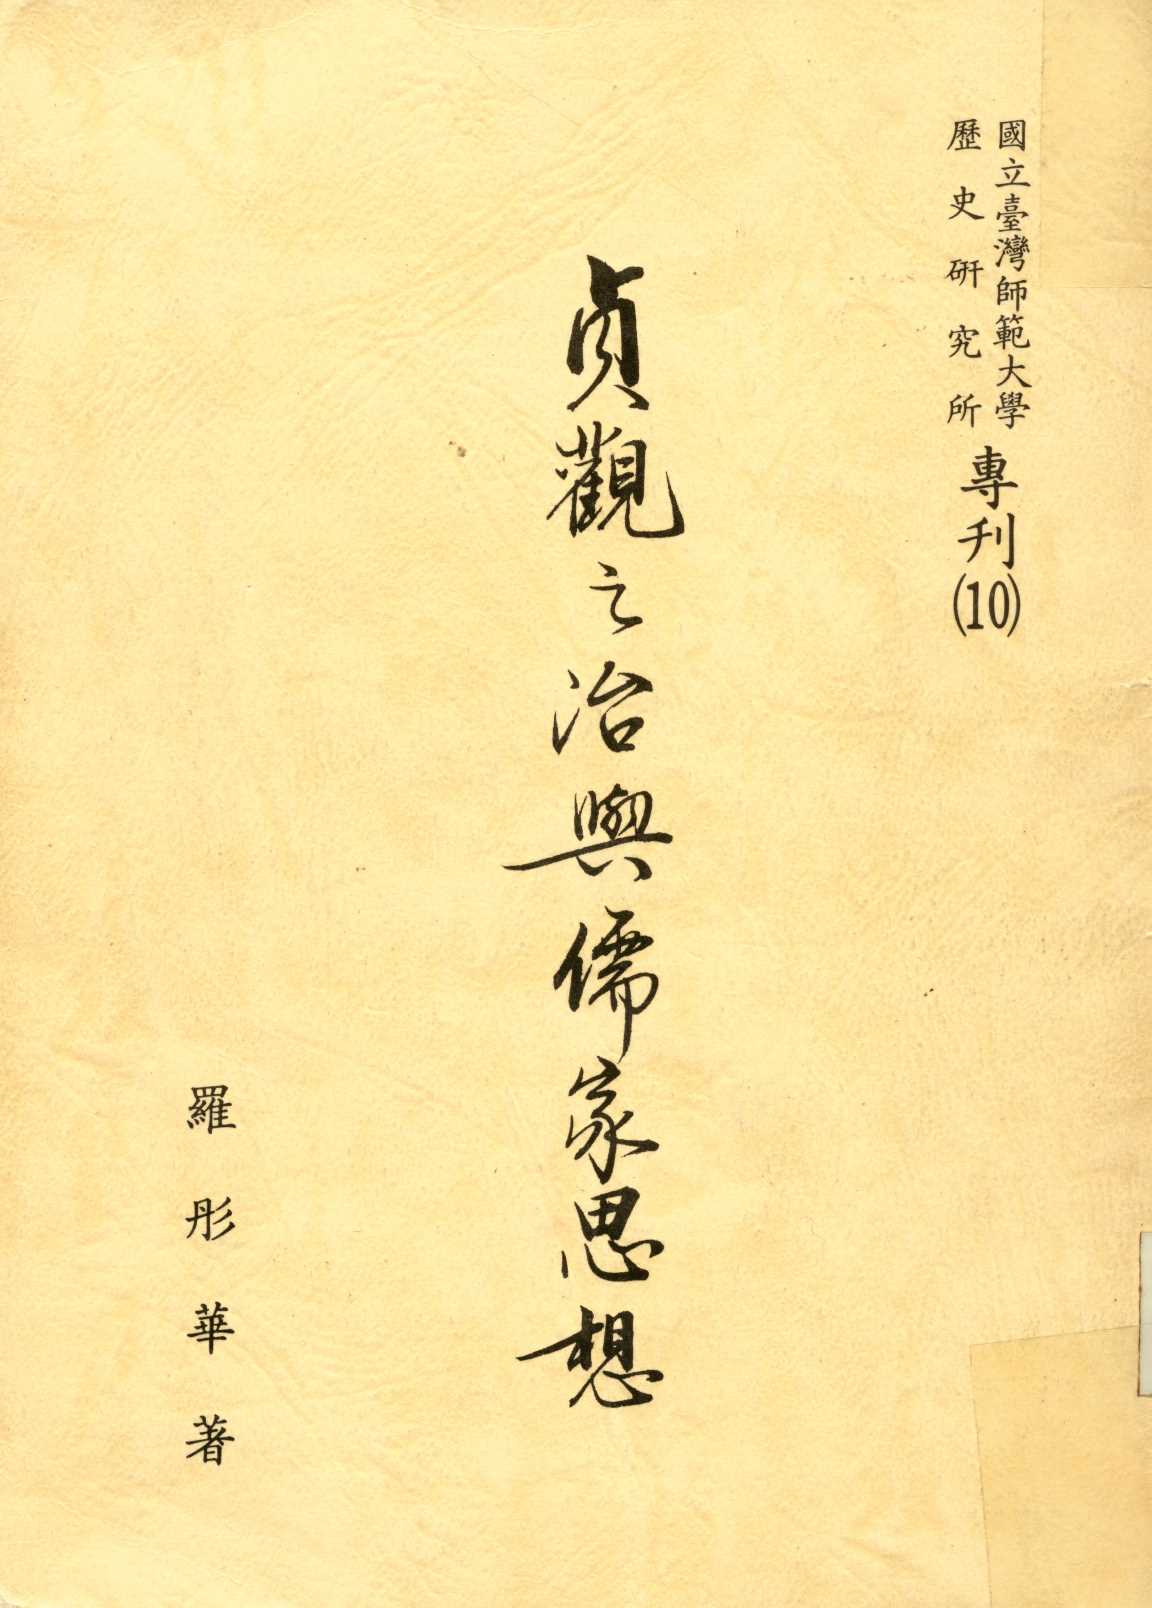 國立臺灣師範大學
歷史研究所
專刊(10)
貞觀之治與儒家思想
羅彤華著